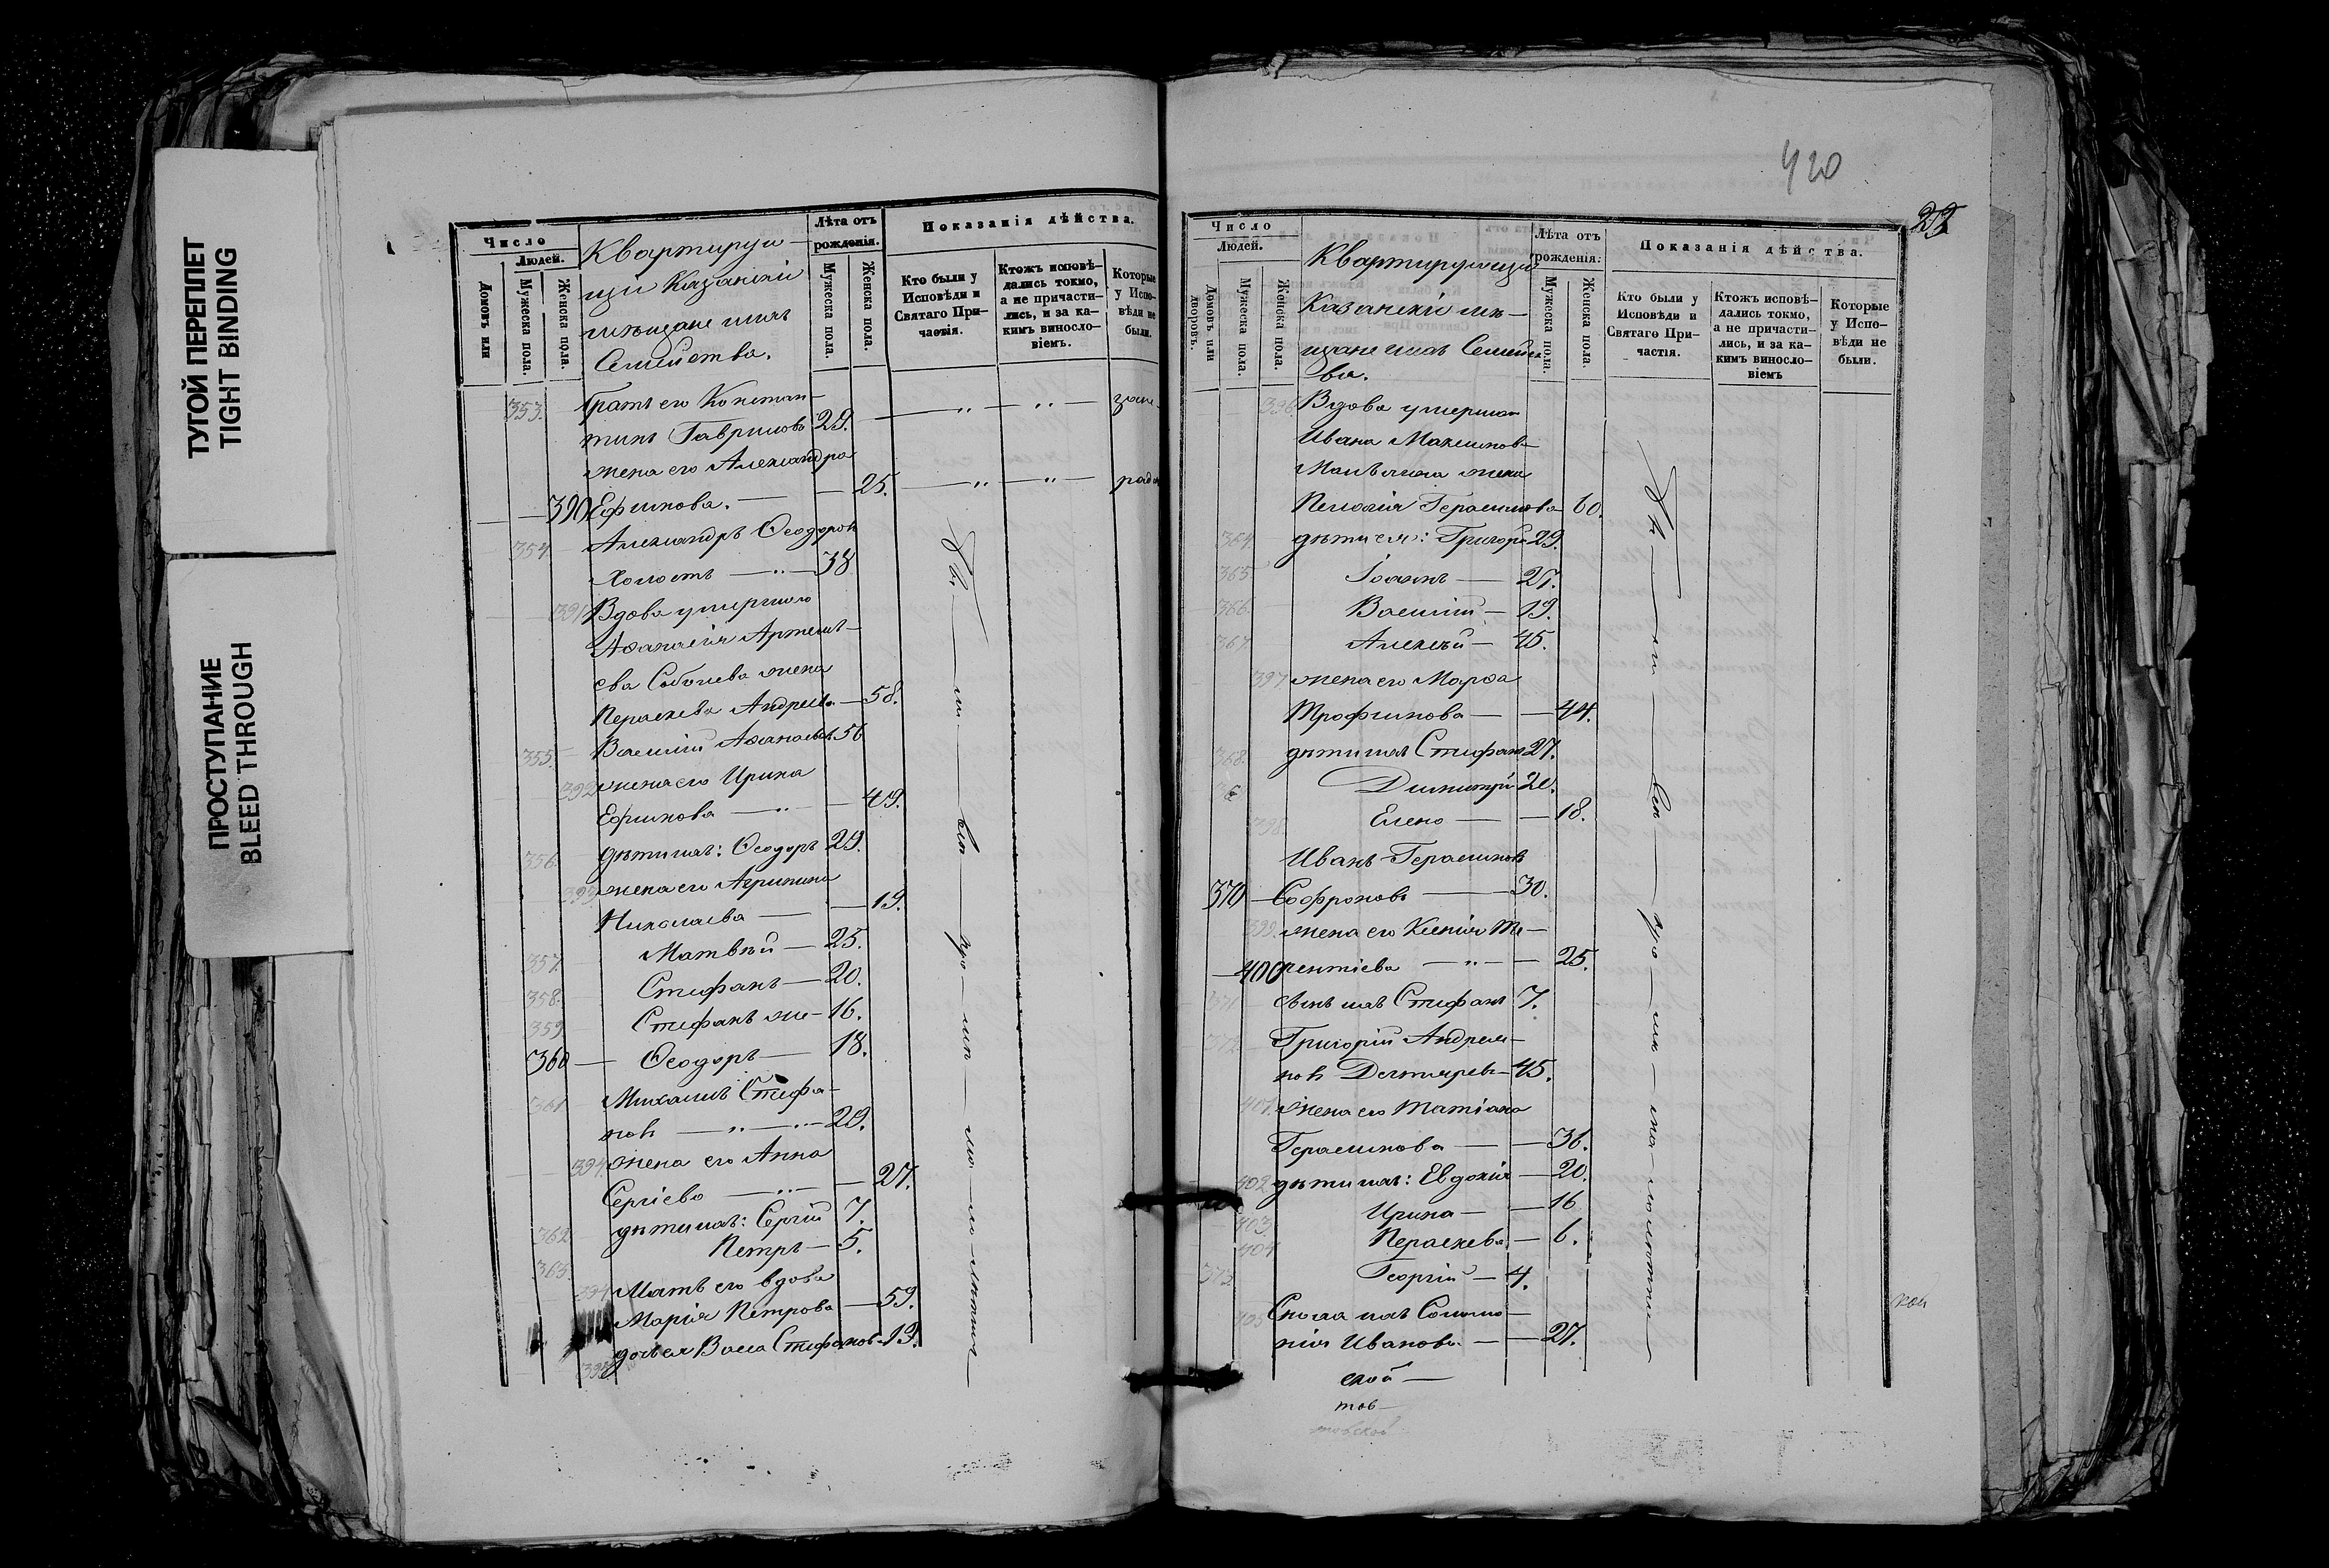 ТУГОЙ ПЕРЕПЛЕТ
TIGHT BINDING
ПРОСТУПАНИЕ
BLEED THROUGH
Число
Людей.
Домовъ или
Мужеска пола.
Женска пола.
Квартирую-
щіи Казанскіи
мѣщане ихъ
Семейства.
Лѣта отъ
рожденія.
Мужеска пола.
Женска пола.
Показанія дѣйства.
Кто были у
Исповѣди и
Святаго При-
частія.
Ктожъ исповѣ-
дались токмо,
а не причасти-
лись, и за ка-
кимъ винось-
віемъ.
Которые
у Испо-
вѣди не
были.
353. Братъ его Констан-
тинъ Гавриловъ 29.
жена его Александра
390 Ефимова. — 25.
354 Александръ Ѳеодоровъ
холостъ — 38
391 Вдова умершаго
Аѳанасія Артемь-
ева жена
Параскева Андреева — 58.
355. Василій Аѳанасьевъ 56
392 жена его Ирина
Ефимова — 49.
356. дѣти ихъ: Ѳеодоръ 29.
393 жена его Агрипина
Николаева — 19.
357. Матвѣй — 25.
358. Стефанъ — 20.
359 Стефанъ же — 16.
360 — Ѳеодоръ — 18.
361 Михаилъ Стефа-
новъ — 29.
394 жена его Анна
Сергіева — 27.
362 дѣти ихъ: Сергій 7.
363. Петръ — 5.
394 Мать его вдова
Марія Петрова — 59.
395 дочь ея Васса Стефанов. 19.
420
Число
Людей.
Домовъ или
дворовъ.
Мужеска пола.
Женска пола.
Квартирующіи
Казанскіи мѣ-
щане ихъ Семейст-
ва.
Лѣта отъ
рожденія.
Мужеска пола.
Женска пола.
Показанія дѣйства.
Кто были у
Исповѣди и
Святаго При-
частія.
Ктожъ исповѣ-
дались токмо,
а не причасти-
лись, и за ка-
кимъ винось-
віемъ
Которые
у Испо-
вѣди не
были.
396 Вдова умершаго
Ивана Максимов-
жена
Пелагія Герасимова 60.
364. дѣти ея: Григорій 29.
365 Іоаннъ — 27.
366 Василій — 19.
367 Алексѣй — 45.
397 жена его Марѳа
Трофимова — 44.
368. дѣти ихъ Стефанъ 27.
Димитрій 20.
398 Елена — 18.
Иванъ Герасимовъ
370 — Софроновъ — 30.
399. жена его Ксенія Те-
400 рентіева — 25.
371 сынъ ихъ Стефанъ 7.
372 Григорій Андреія-
новъ Дегтяревъ — 45.
401. жена его Татіана
Герасимова — 36.
402 дѣти ихъ: Евдокія — 20.
403. Ирина — 16
404 Параскева — 6.
373 Георгій — 4.
405 Сноха ихъ Соломо-
нія Иванова — 27.
ской —
тов —
товской